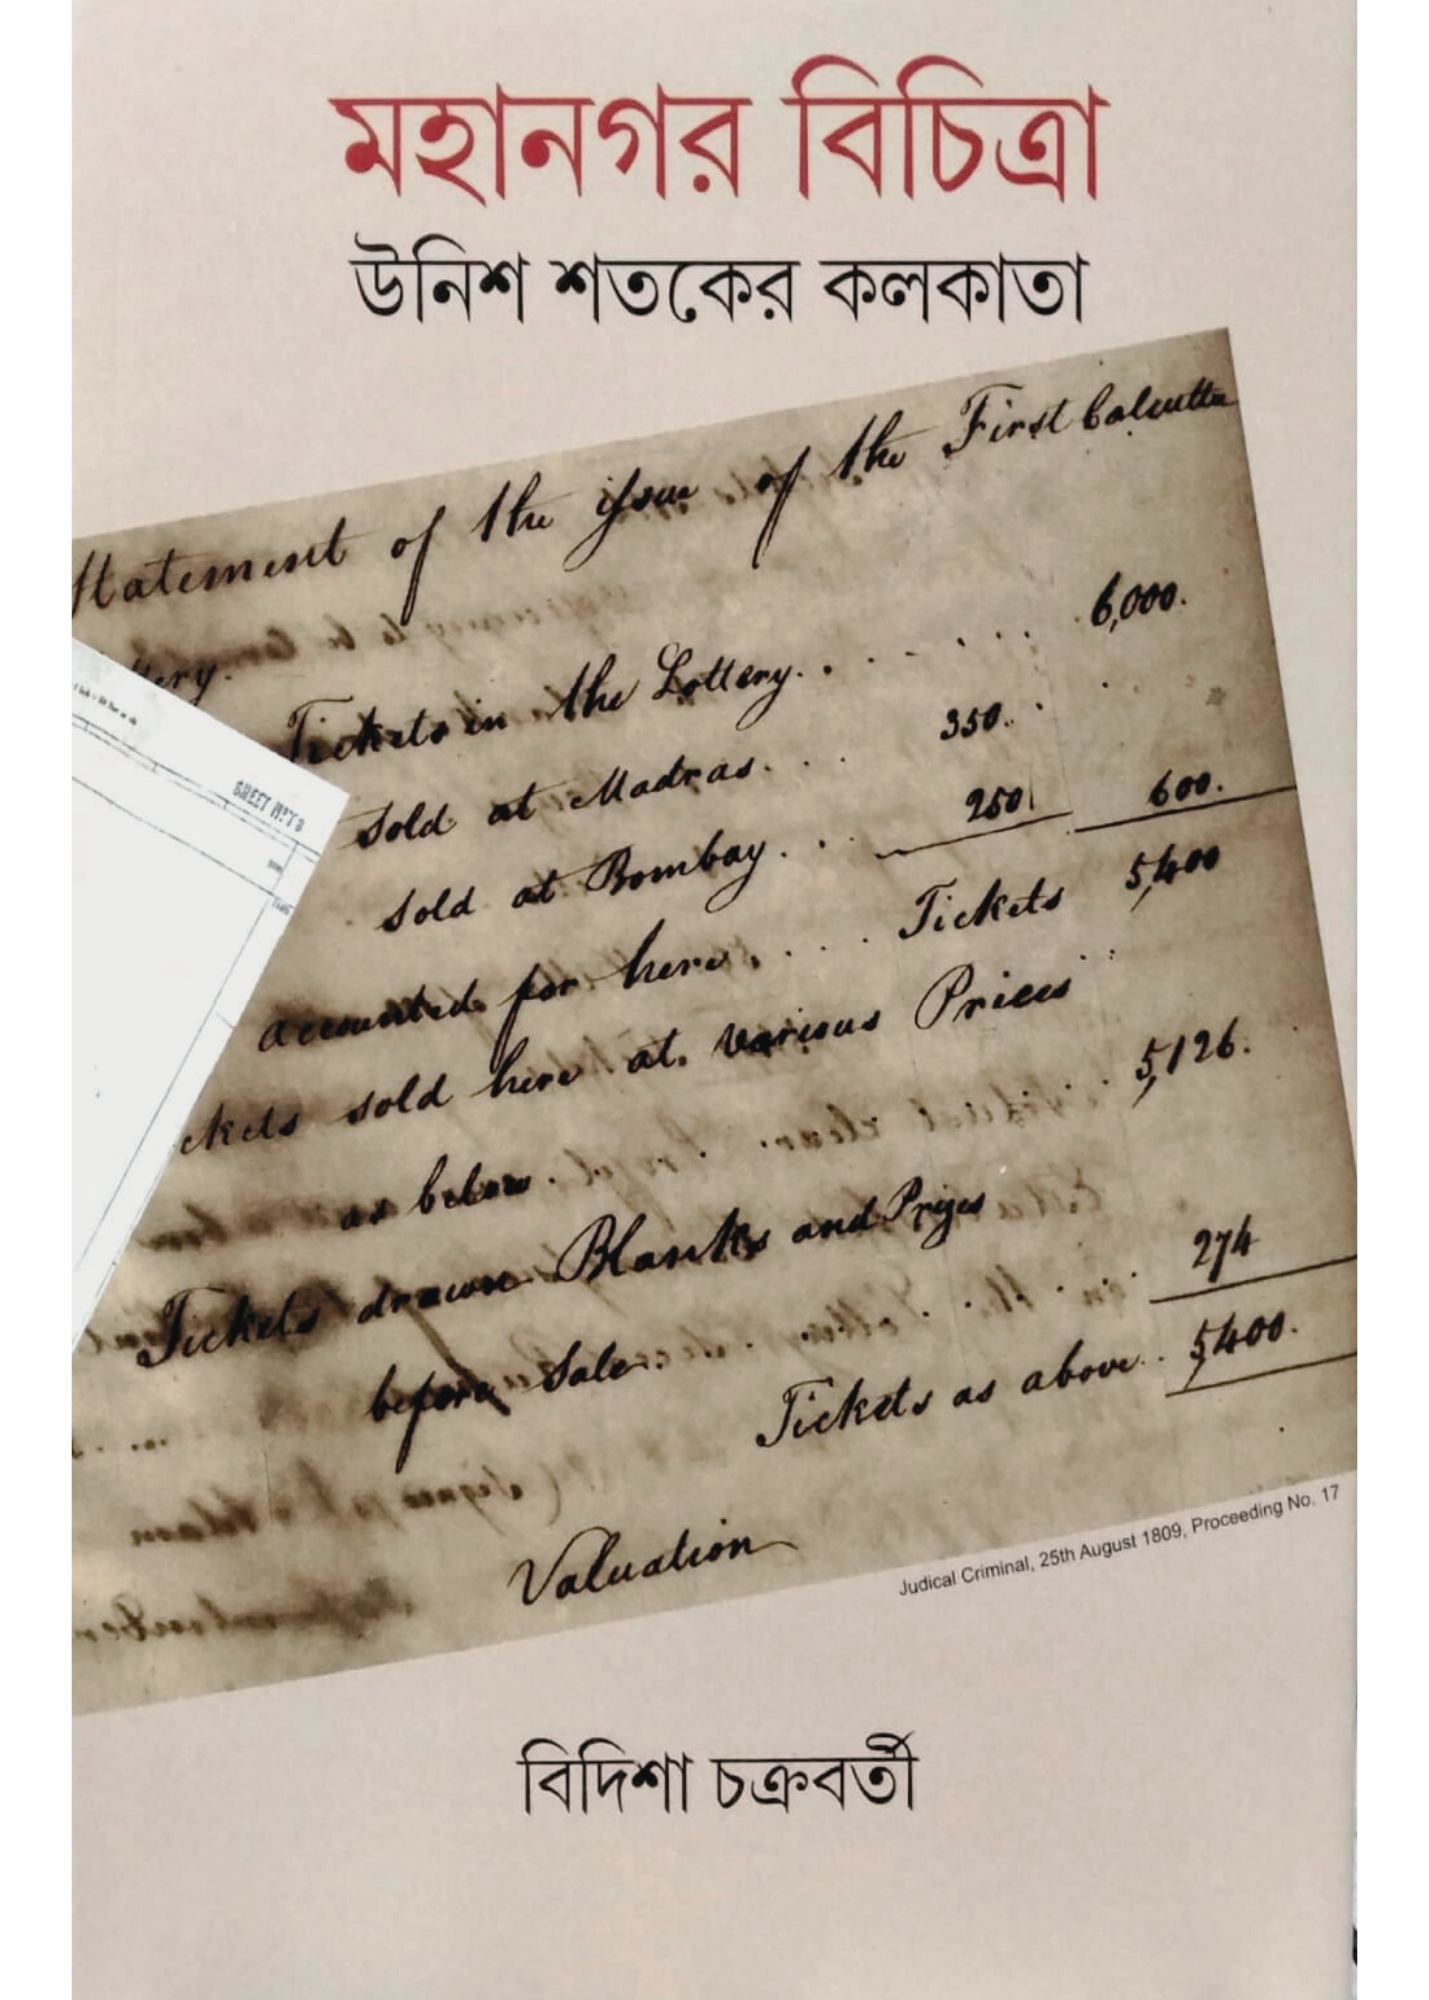 মহানগর বিচিত্রা
উনিশ শতকের কলকাতা
Statement of the issue of the First Calcutta
ttery.
Tickets in the Lottery. 6,000.
Sold at Madras. 350.
Sold at Bombay. 250 600.
accounted for here Tickets 5,400
ckets sold here at various Prices
as below. 5,126.
Tickets drawn Blanks and Prizes
before Sale. 274
Tickets as above 5,400.
Valuation
SHEET No. 73
Judical Criminal, 25th August 1809, Proceeding No. 17
বিদিশা চক্রবর্তী